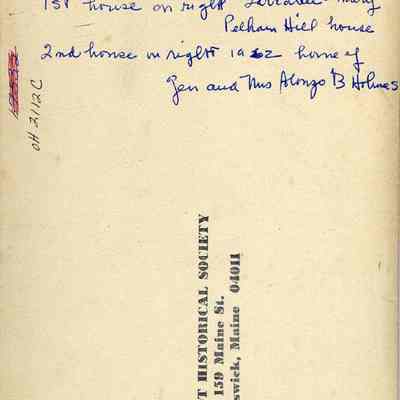 1st house on right
Pelham Hill house
2nd house on right 1962 home of
Gen and Mrs Alonzo B Holmes
OH 2112C
T HISTORICAL SOCIETY
159 Maine St.
swick, Maine 04011